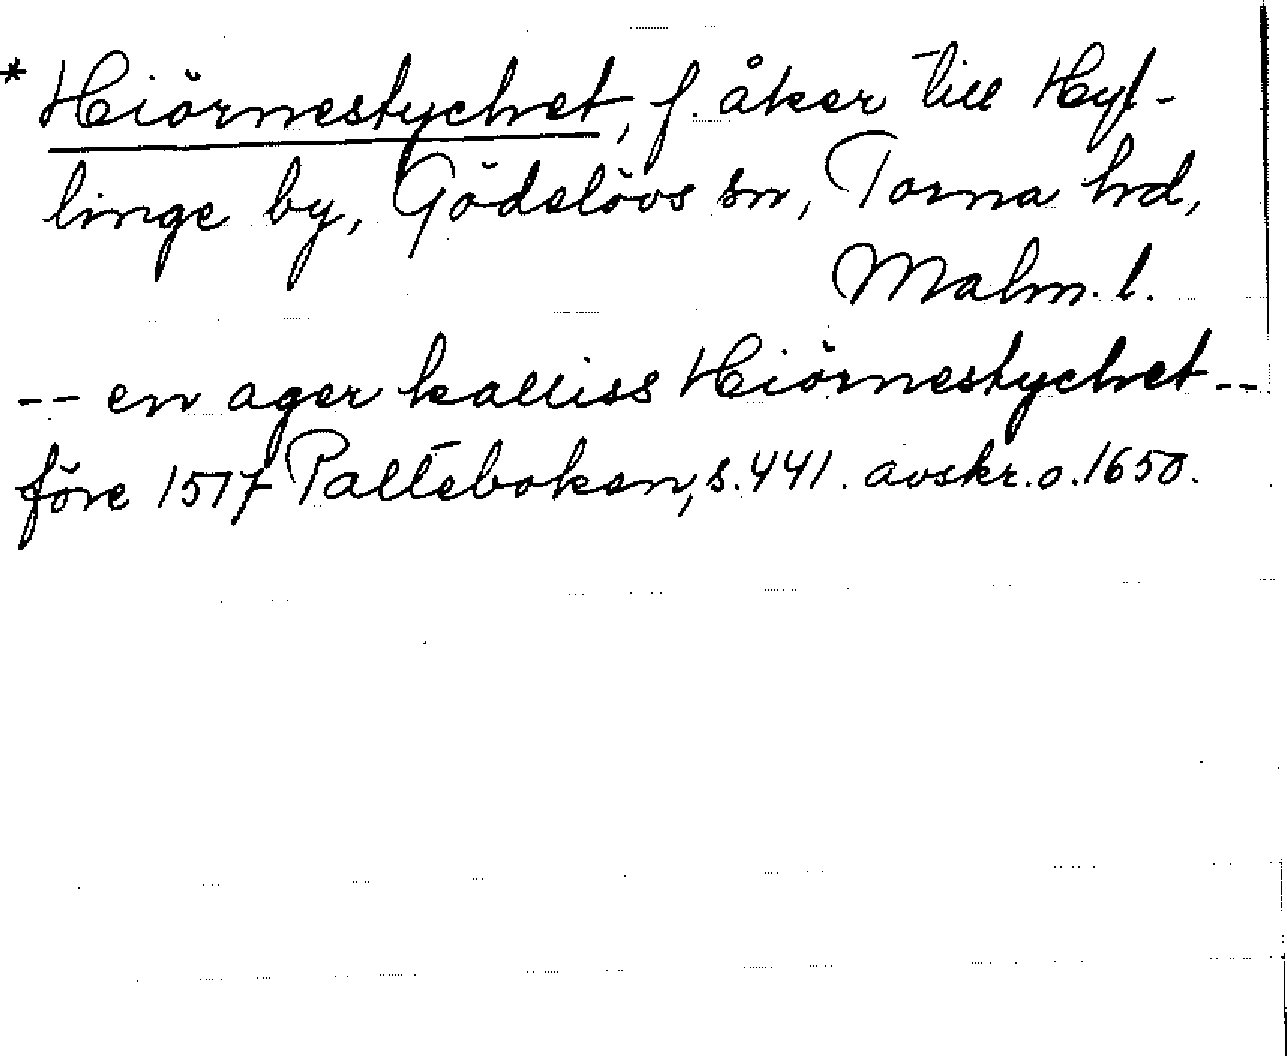 * Hiörnestychet, f. åker till Hyl-
linge by, Gödelövs sn, Torna hd,
Malm. l.
-- en ager kalliss Hiörnestychet --
före 1517 Palteboken, s. 441. avskr. o. 1650.